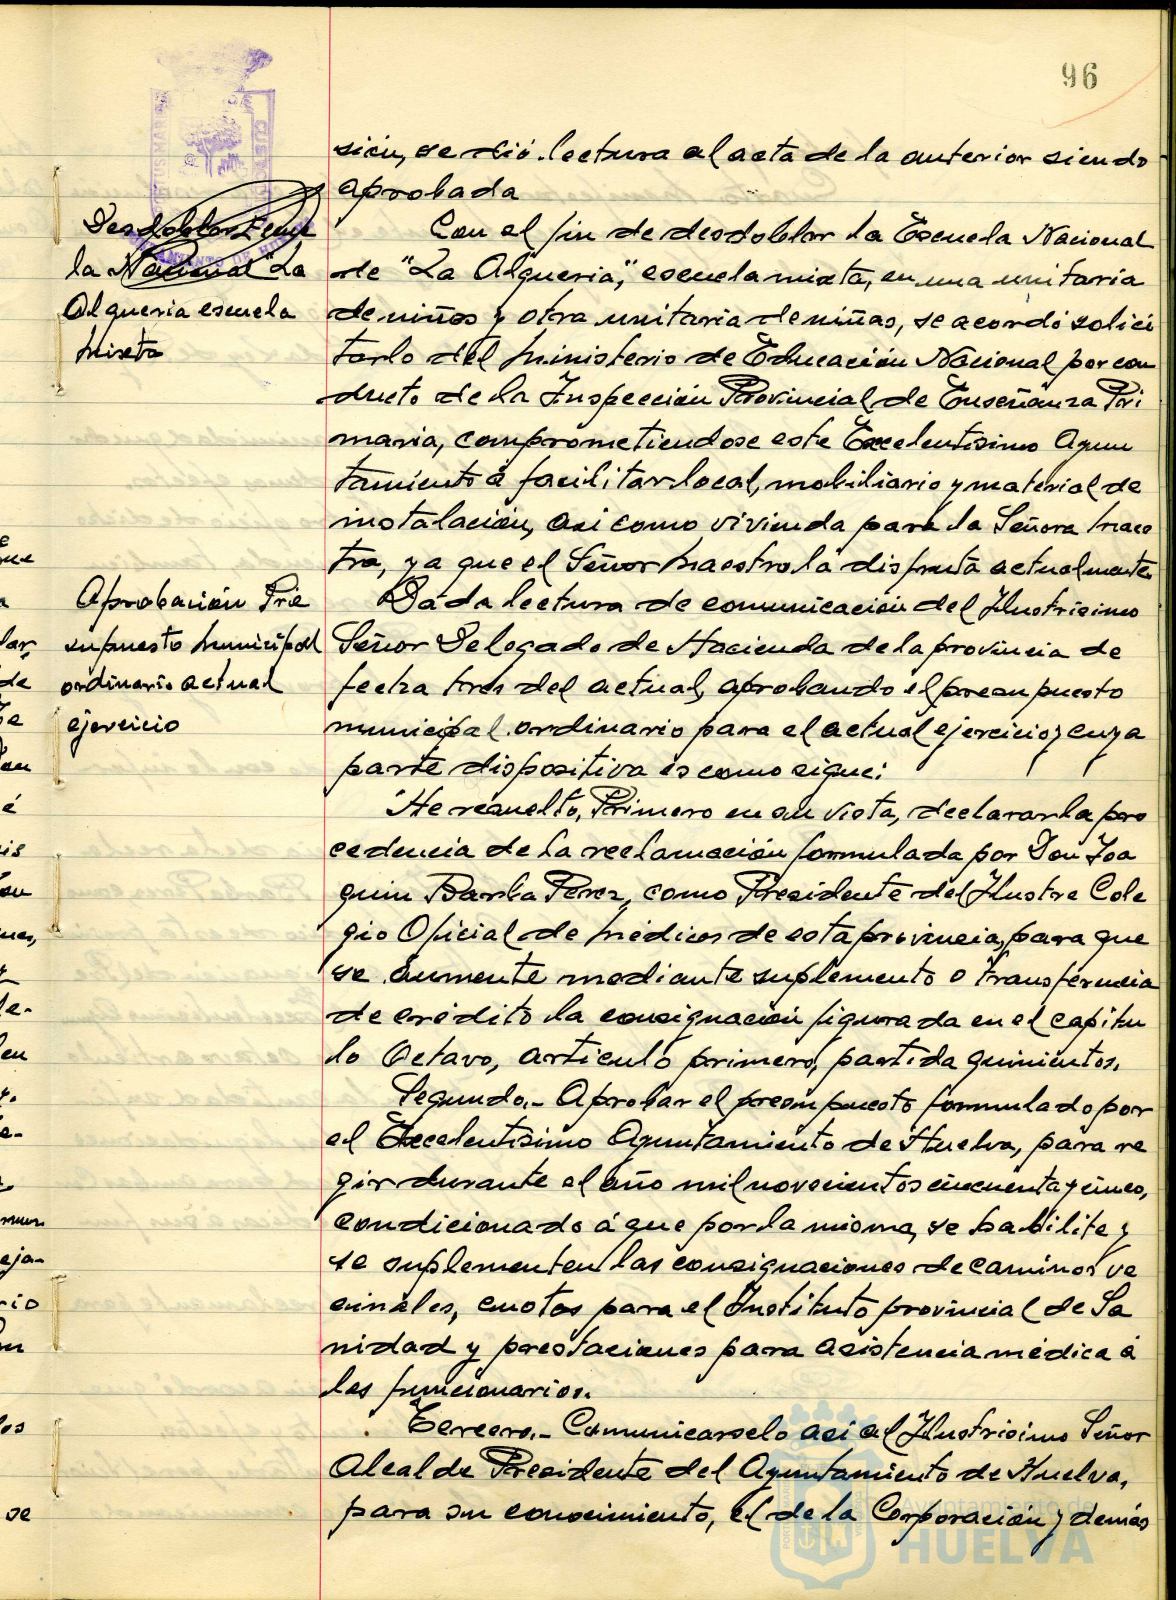 96
sión, se dió lectura al acta de la anterior siendo
aprobada
Desdoblar Escue
la Nacional "La
Alqueria escuela
mixta
Con el fin de desdoblar la Escuela Nacional
de "La Alqueria", escuela mixta, en una unitaria
de niños y otra unitaria de niñas, se acordó solici
tarlo del Ministerio de Educación Nacional por con
ducto de la Inspección Provincial de Enseñanza Pri
maria, comprometiendose este Excelentisimo Ayun
tamiento á facilitar local, mobiliario y material de
instalación, asi como vivienda para la Señora maes
tra, ya que el Señor maestro la disfruta actualmente
Aprobación Pre
supuesto municipal
ordinario actual
ejercicio
Dada lectura de comunicación del Ilustrisimo
Señor Delegado de Hacienda de la provincia de
fecha tres del actual, aprobando el presupuesto
municipal ordinario para el actual ejercicio y cuya
parte dispositiva es como sigue:
"He resuelto, Primero en su vista, declarar la pro
cedencia de la reclamación formulada por Don Joa
quin Barba Perez, como Presidente del Ilustre Cole
gio Oficial de médicos de esta provincia, para que
se aumente mediante suplemento o transferencia
de crédito la consignación figurada en el capitu
lo Octavo, articulo primero, partida quinientos.
Segundo.- Aprobar el presupuesto formulado por
el Excelentisimo Ayuntamiento de Huelva, para re
gir durante el año mil novecientos cincuenta y cinco,
condicionado á que por la misma, se habilite y
se suplementen las consignaciones de caminos ve
cinales, cuotas para el Instituto provincial de Sa
nidad y prestaciones para asistencia médica á
los funcionarios.
Tercero.- Comunicarselo asi al Ilustrisimo Señor
Alcalde Presidente del Ayuntamiento de Huelva,
para su conocimiento, el de la Corporación y demás
Ayuntamiento de
HUELVA